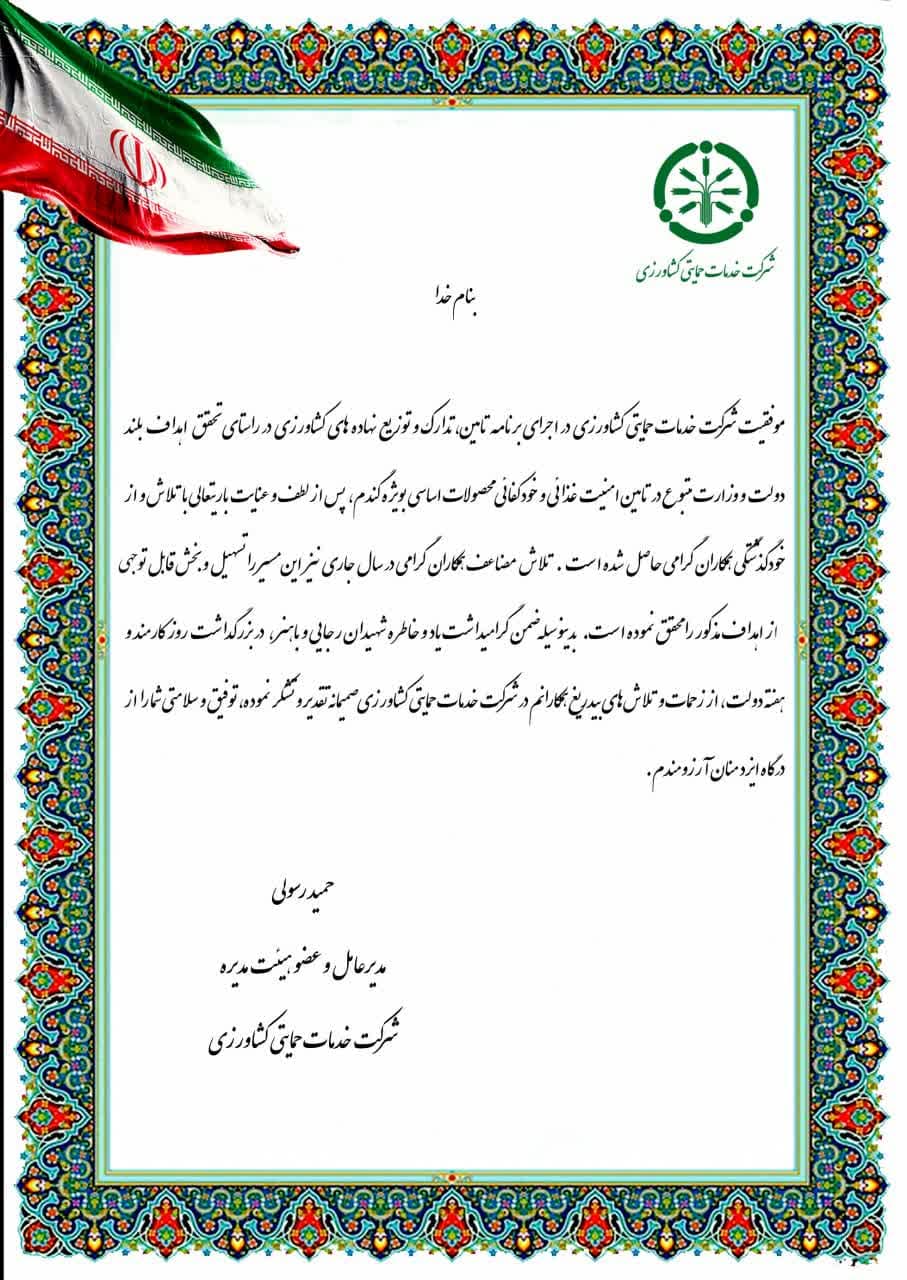 شرکت خدمات حمایتی کشاورزی
بنام خدا
موفقیت شرکت خدمات حمایتی کشاورزی در اجرای برنامه تامین، تدارک و توزیع نهاده های کشاورزی در راستای تحقق اهداف بلند
دولت و وزارت متبوع در تامین امنیت غذائی و خودکفائی محصولات اساسی بویژه گندم، پس از لطف و عنایت باریتعالی با تلاش و از
خودگذشتگی همکاران گرامی حاصل شده است . تلاش مضاعف همکاران گرامی در سال جاری نیز این مسیر را تسهیل و بخش قابل توجهی
از اهداف مذکور را محقق نموده است. بدینوسیله ضمن گرامیداشت یاد و خاطره شهیدان رجایی و باهنر، در بزرگداشت روز کارمند و
هفته دولت، از زحمات و تلاش های بیدریغ همکارانم در شرکت خدمات حمایتی کشاورزی صمیمانه تقدیر و تشکر نموده، توفیق و سلامتی شما را از
درگاه ایزد منان آرزومندم .
حمید رسولی
مدیرعامل و عضو هیئت مدیره
شرکت خدمات حمایتی کشاورزی